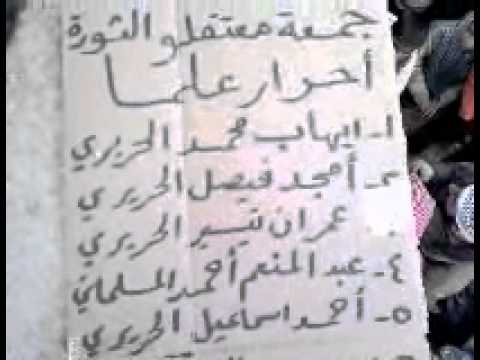 جمعة معتقلو الثورة
أحرار علما
١- ايهاب محمد الحريري
٢- أمجد فيصل الحريري
عمران تيسير الحريري
٤- عبد المنعم أحمد المسلماني
٥- أحمد اسماعيل الحريري